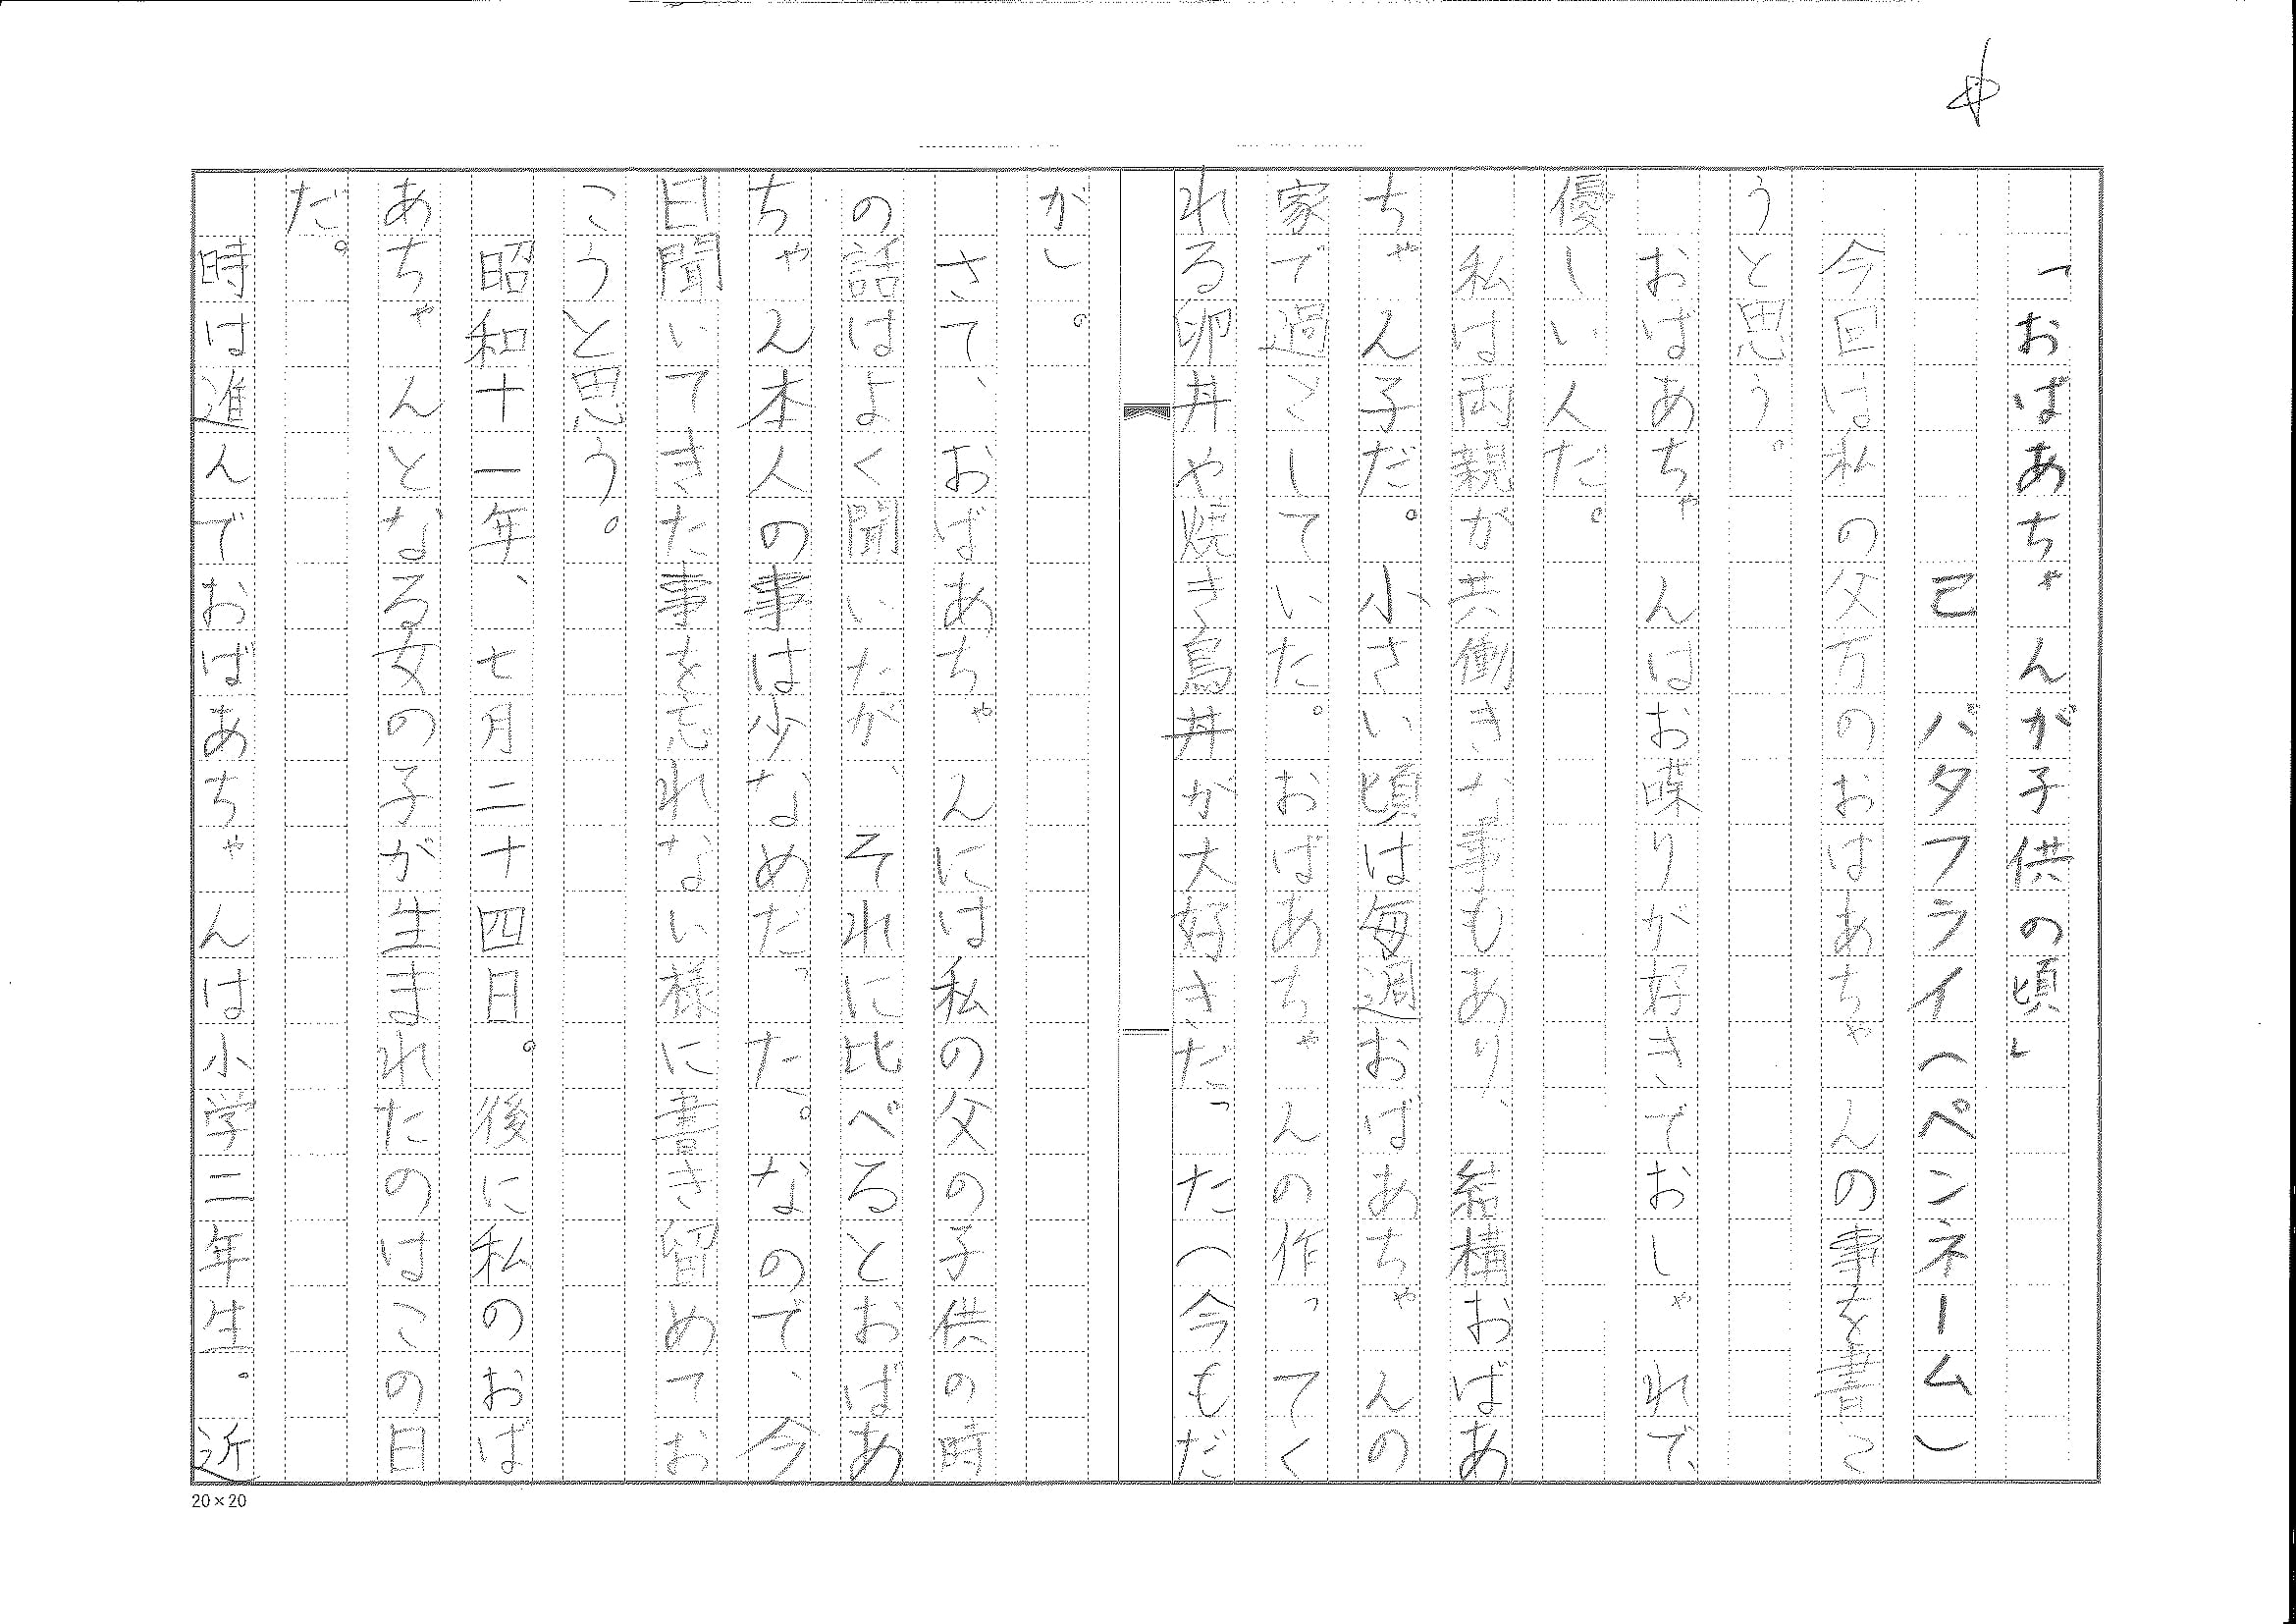 「おばあちゃんが子供の頃」
己 バタフライ(ペンネーム)
今回は私の父方のおばあちゃんの事を書こ
うと思う。
おばあちゃんはお喋りが好きでおしゃれで、
優しい人だ。
私は両親が共働きな事もあり、結構おばあ
ちゃん子だ。小さい頃は毎週おばあちゃんの
家で過ごしていた。おばあちゃんの作ってく
れる卵丼や焼き鳥丼が大好きだった(今もだ
が)。
さて、おばあちゃんには私の父の子供の時
の話はよく聞いたが、それに比べるとおばあ
ちゃん本人の事は少なめだった。なので、今
日聞いてきた事を忘れない様に書き留めてお
こうと思う。
昭和十一年、七月二十四日。後に私のおば
あちゃんとなる女の子が生まれたのはこの日
だ。
時は進んでおばあちゃんは小学二年生。近
20×20